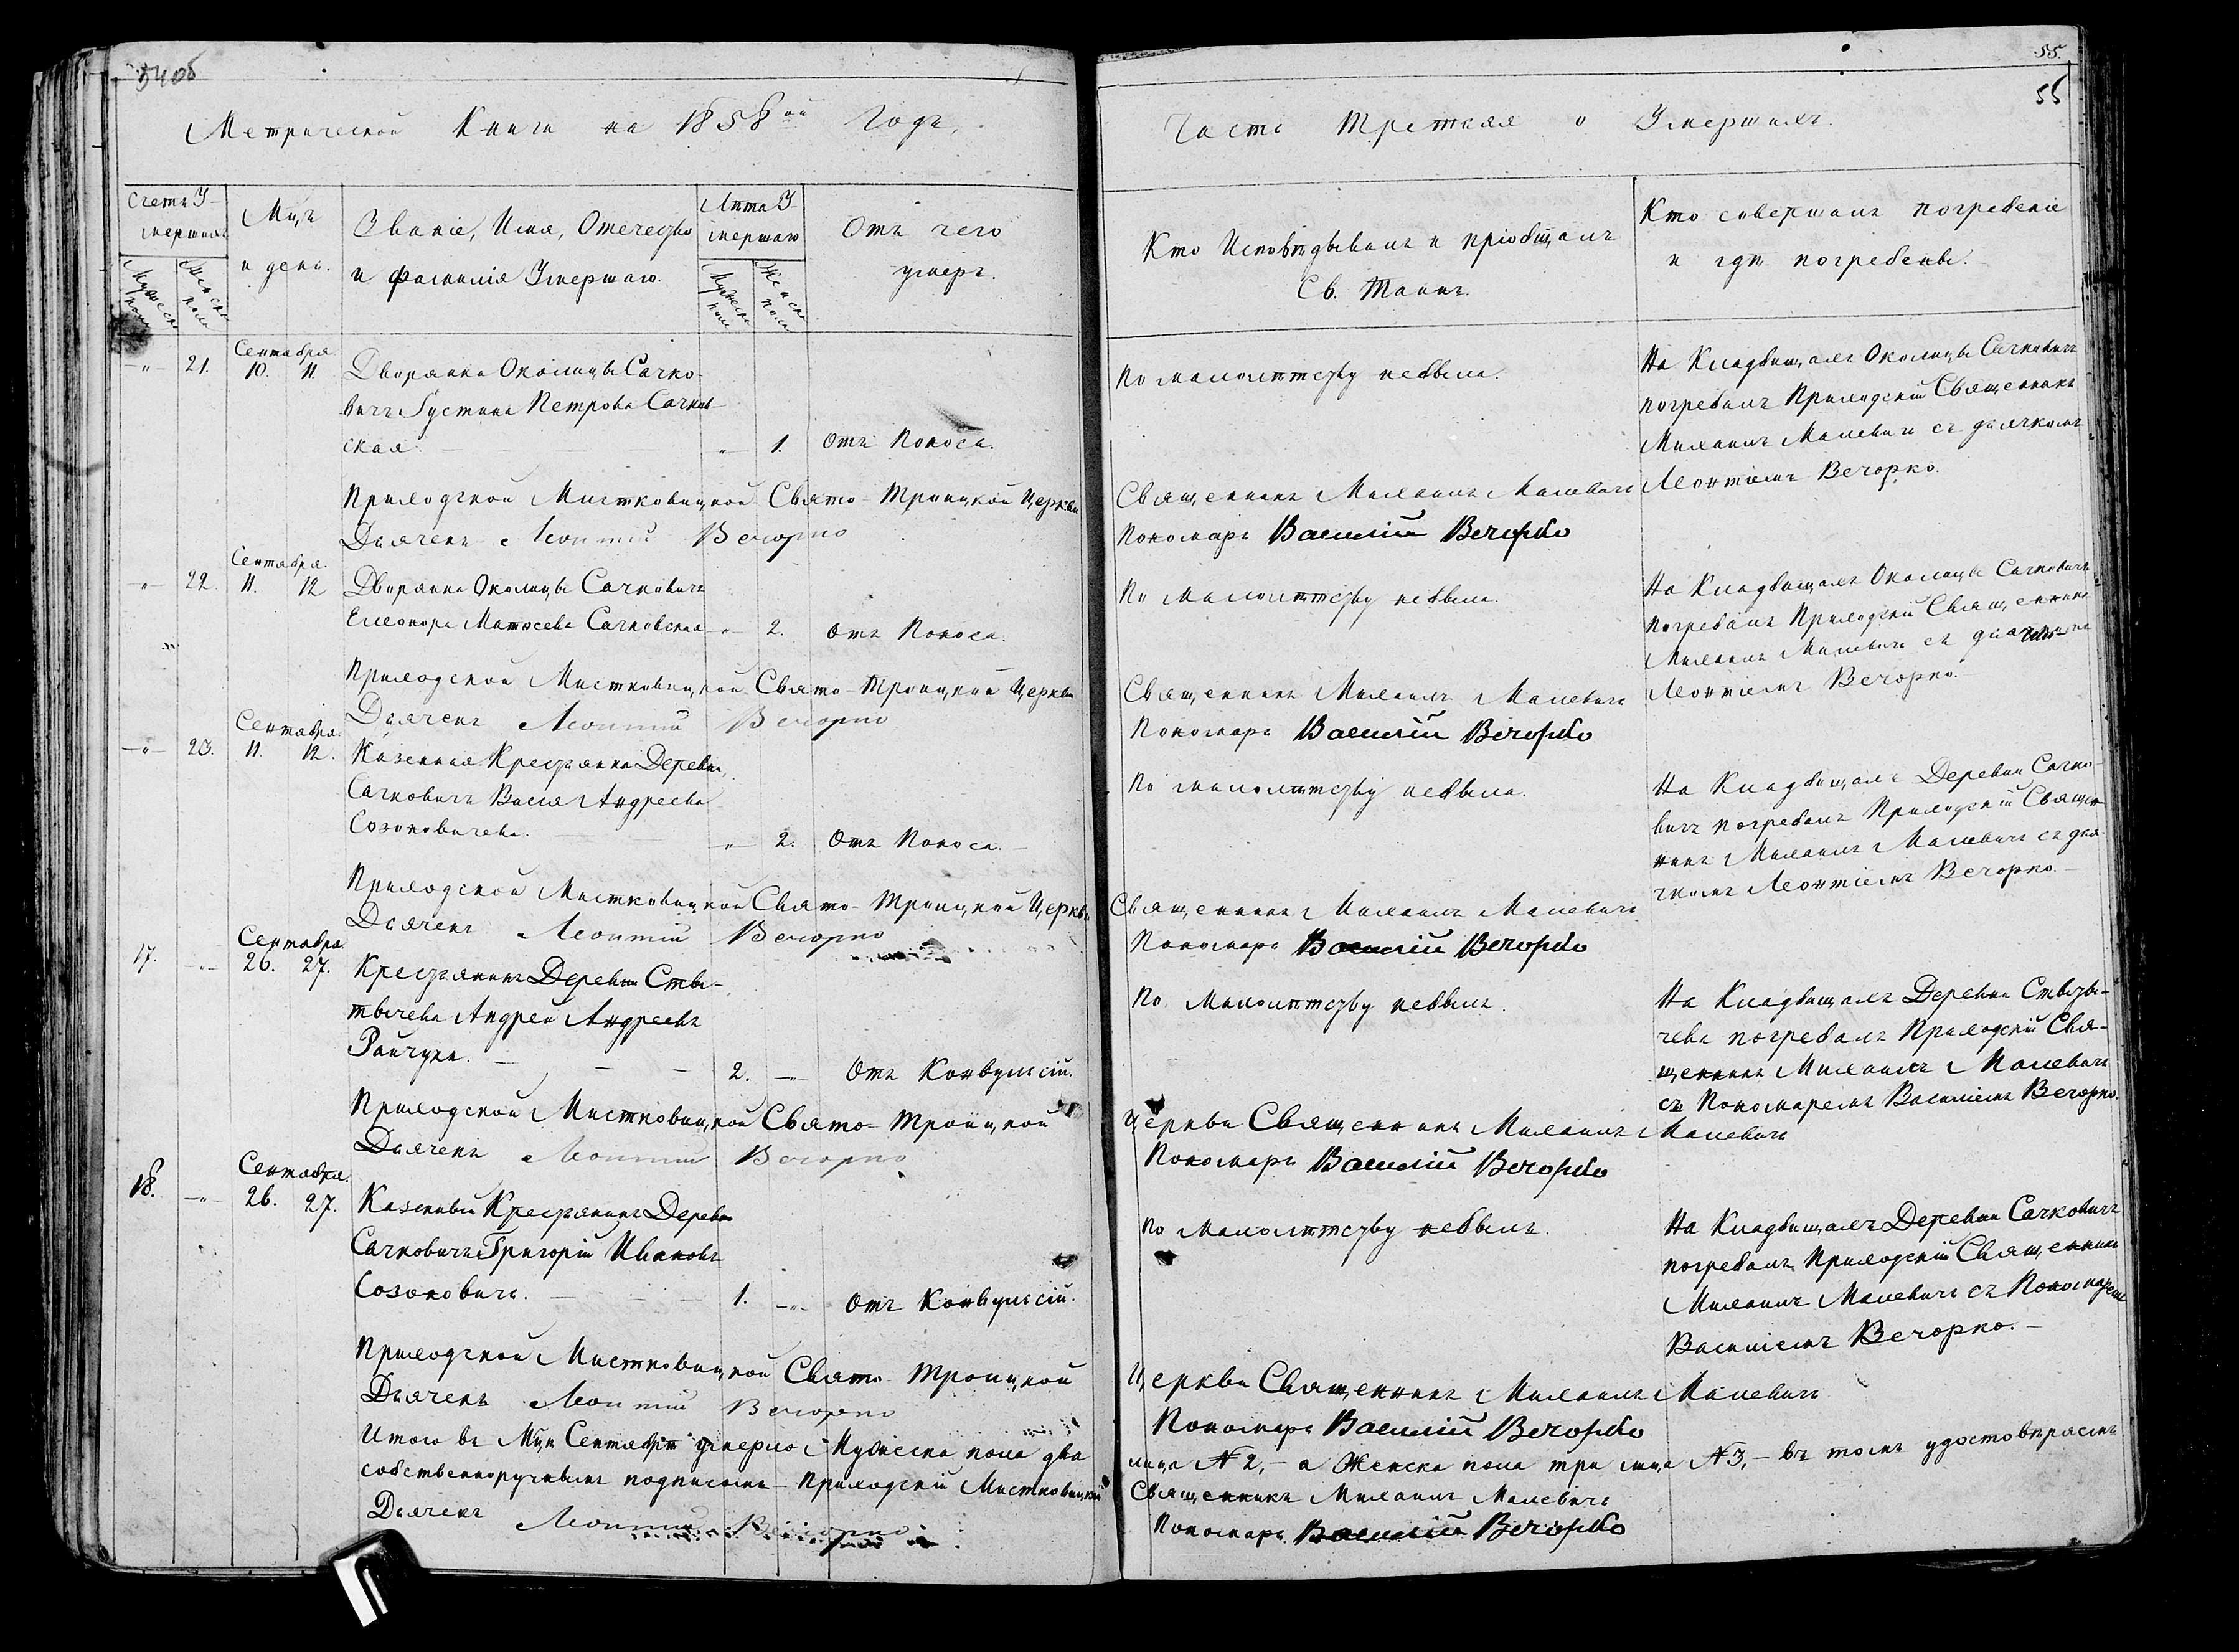 54об
Метрической Книги на 1858ой Годъ,
Счетъ У-
мершихъ
Мужеска
пола
Женска
пола
Мцъ
и день.
Званіе, Имя, Отечество
и фамилія Умершаго.
Лѣта У-
мершаго
Мужеска
пола
Женска
пола
Отъ чего
умеръ.
Сентября
-"- 21. 10. 11. Дворянка Околицы Сачко-
вичъ Густина Петрова Сачков-
ская. " 1. Отъ Поноса.
Приходской Мистковицкой Свято-Троицкой Церкви
Дьячекъ Леонтій Вечорко
Сентября.
-"- 22. 11. 12 Дворянка Околицы Сачковичъ
Елеонора Матосева Сачковская -"- 2. Отъ Поноса.
Приходской Мистковицкой Свято-Троицкой Церкви
Дьячекъ Леонтій Вечорко
Сентября.
-"- 23. 11. 12. Казенная Крестьянка Деревни
Сачковичъ Васса Андреева
Созоновичева. -"- 2. Отъ Поноса.
Приходской Мистковицкой Свято-Троицкой Церкви
Дьячекъ Леонтій Вечорко
Сентября
17. -"- 26. 27. Крестьянинъ Деревни Ствы-
тычева Андрей Андреевъ
2. -"- Отъ Конвульсій.
Приходской Мистковицкой Свято-Троицкой
Дьячекъ Леонтій Вечорко
Сентября.
18. -"- 26. 27. Казенный Крестьянинъ Деревни
Сачковичъ Григорій Ивановъ
Созоновичъ. 1. -"- Отъ Конвульсій.
Приходской Мистковицкой Свято-Троицкой
Дьячекъ Леонтій Вечорко
Итого въ Мцѣ Сентябрѣ умерло Мужеска пола два
собственноручнымъ подписомъ Приходскій Мистковицкій
Дьячекъ Леонтій Вечорко
55.
55
Часть Третяя о Умершихъ.
Кто Исповѣдывалъ и пріобщалъ
Св. Таинъ.
Кто совершалъ погребеніе
и гдѣ погребены.
По малолѣтству небыла.
На Кладбищахъ Околицы Сачковичъ
погребалъ Приходскій Священникъ
Михаилъ Малевичъ съ дьячкомъ
Леонтіемъ Вечорко.
Священникъ Михаилъ Малевичъ
Пономарь Василій Вечорко
По малолѣтству небыла.
На Кладбищахъ Околицы Сачковичъ
погребалъ Приходскій Священникъ
Михаилъ Малевичъ съ
Леонтіемъ Вечорко.
Священникъ Михаилъ Малевичъ
Пономарь Василій Вечорко
По малолѣтству небыла.
На Кладбищахъ Деревни Сачко-
вичъ погребалъ Приходскій Священ-
никъ Михаилъ Малевичъ съ дья-
чкомъ Леонтіемъ Вечорко.
Священникъ Михаилъ Малевичъ
Пономарь Василій Вечорко
По малолѣтству небылъ.
На Кладбищахъ Деревни
чева погребалъ Приходскій Свя-
щенникъ Михаилъ Малевичъ
съ Пономаремъ Василіемъ Вечорко.
Церкви Священникъ Михаилъ Малевичъ
Пономарь Василій Вечорко
По Малолѣтству небылъ.
На Кладбищахъ Деревни Сачковичъ
погребалъ Приходскій Священникъ
Михаилъ Малевичъ съ Пономаремъ
Василіемъ Вечорко.
Церкви Священникъ Михаилъ Малевичъ
Пономарь Василій Вечорко
лица №2,- а Женска пола три лица №3,- въ томъ удостовѣряемъ
Священникъ Михаилъ Малевичъ
Пономарь Василій Вечорко